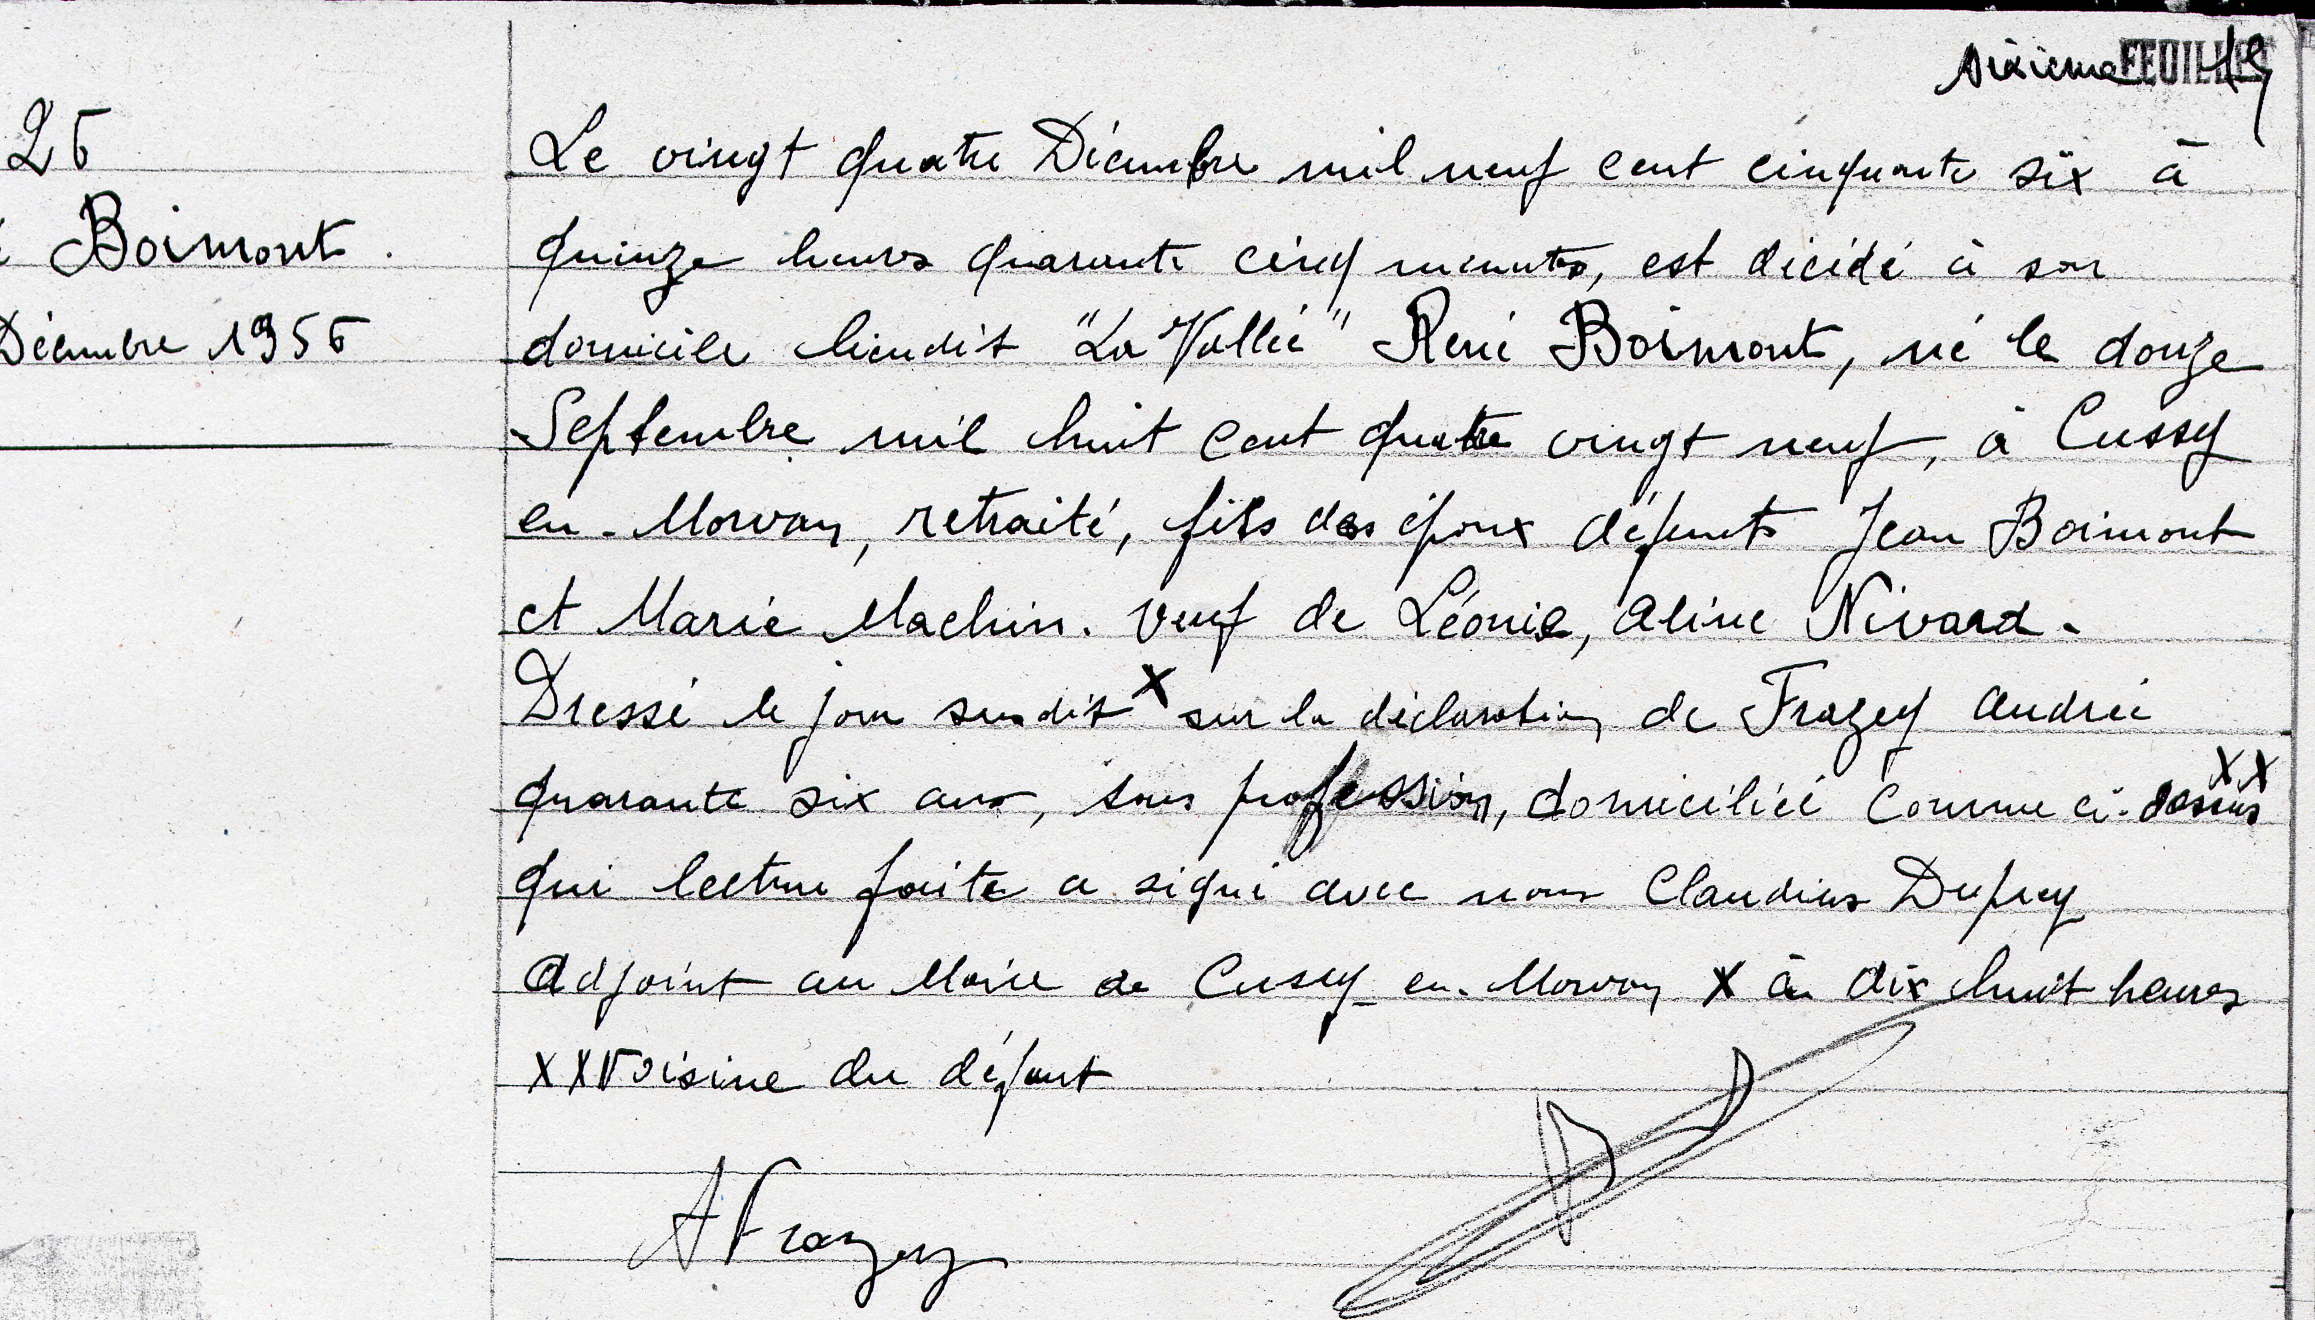 sixième FEUILLET 19
26
Boimont.
Décembre 1956
Le vingt quatre Décembre mil neuf cent cinquante six à
quinze heures quarante cinq minutes, est décédé à son
domicile lieudit "La Vallée" René Boimont, né le douze
Septembre mil huit cent quatre vingt neuf, à Cussy
en-Morvan, retraité, fils des époux défunts Jean Boimont
et Marie Machin. Veuf de Léonie, Aline Nivard.
Dressé le jour susdit X sur la déclaration de Frazey Andrée
quarante six ans, sans profession, domiciliée comme ci-dessus XX
qui lecture faite a signé avec nous Claudius Dupuy
Adjoint au Maire de Cussy-en-Morvan X à dix huit heures
XX Voisine du défunt
A Frazey